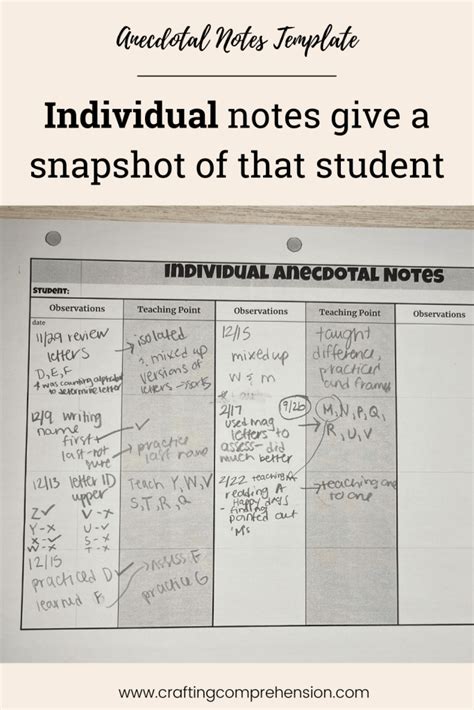 Anecdotal Notes Template
Individual notes give a
snapshot of that student
Individual Anecdotal Notes
Student:
Observations
Teaching Point
Observations
Teaching Point
Observations
date
11/29 review
letters
D, E, F
* was counting alphabet
to determine letter
isolated
& mixed up
versions of
letters
12/9 writing
name
first
last-not
sure
practice
last name
12/13 letter ID
upper
Z✓ V-x
Y-x U-v
X-✓ S-x
W-x T-x
Teach Y, W, V
S, T, R, Q
12/15
practiced D✓
learned F
Assess F
practice G
12/15
mixed up
W & m
taught
difference,
practiced
and frames
2/17
used mag
letters to
assess- did
much better
9/26
M, N, P, Q,
R, U, V
2/22 teaching
reading A
Happy days
- finding
pointed out
"M"s
teaching one
to one
www.craftingcomprehension.com